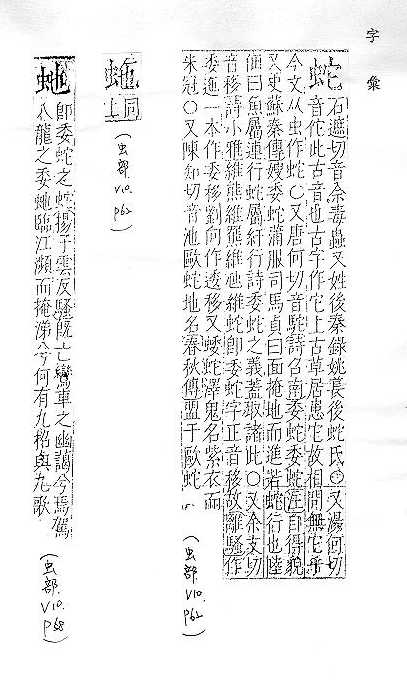 字彙
蛇 石遮切音佘毒蟲又姓後秦錄姚萇後蛇氏〇又湯何切
音佗此古音也古字作它上古草居患它故相問無它乎
今文从虫作蛇〇又唐何切音駝詩召南委蛇委蛇注自得貌
又史蘇秦傳嫂委蛇蒲服司馬貞曰面掩地而進若蛇行也陸
佃曰魚屬連行蛇屬紆行詩委蛇之義蓋取諸此〇又余支切
音移詩小雅維熊維羆維虺維蛇卽委蛇字正音移故離騷作
委迤一本作委移劉向作逶移又蟡蛇澤鬼名紫衣而
朱冠〇又陳知切音池歐蛇地名春秋傳盟于歐蛇
(虫部. V10. P62)
虵 同上
(虫部 V10. P62)
虵 卽委蛇之蛇揚子雲反騷旣亡鸞車之幽藹兮焉駕
八龍之委虵臨江瀕而掩涕兮何有九招與九歌
(虫部. V10. P68)